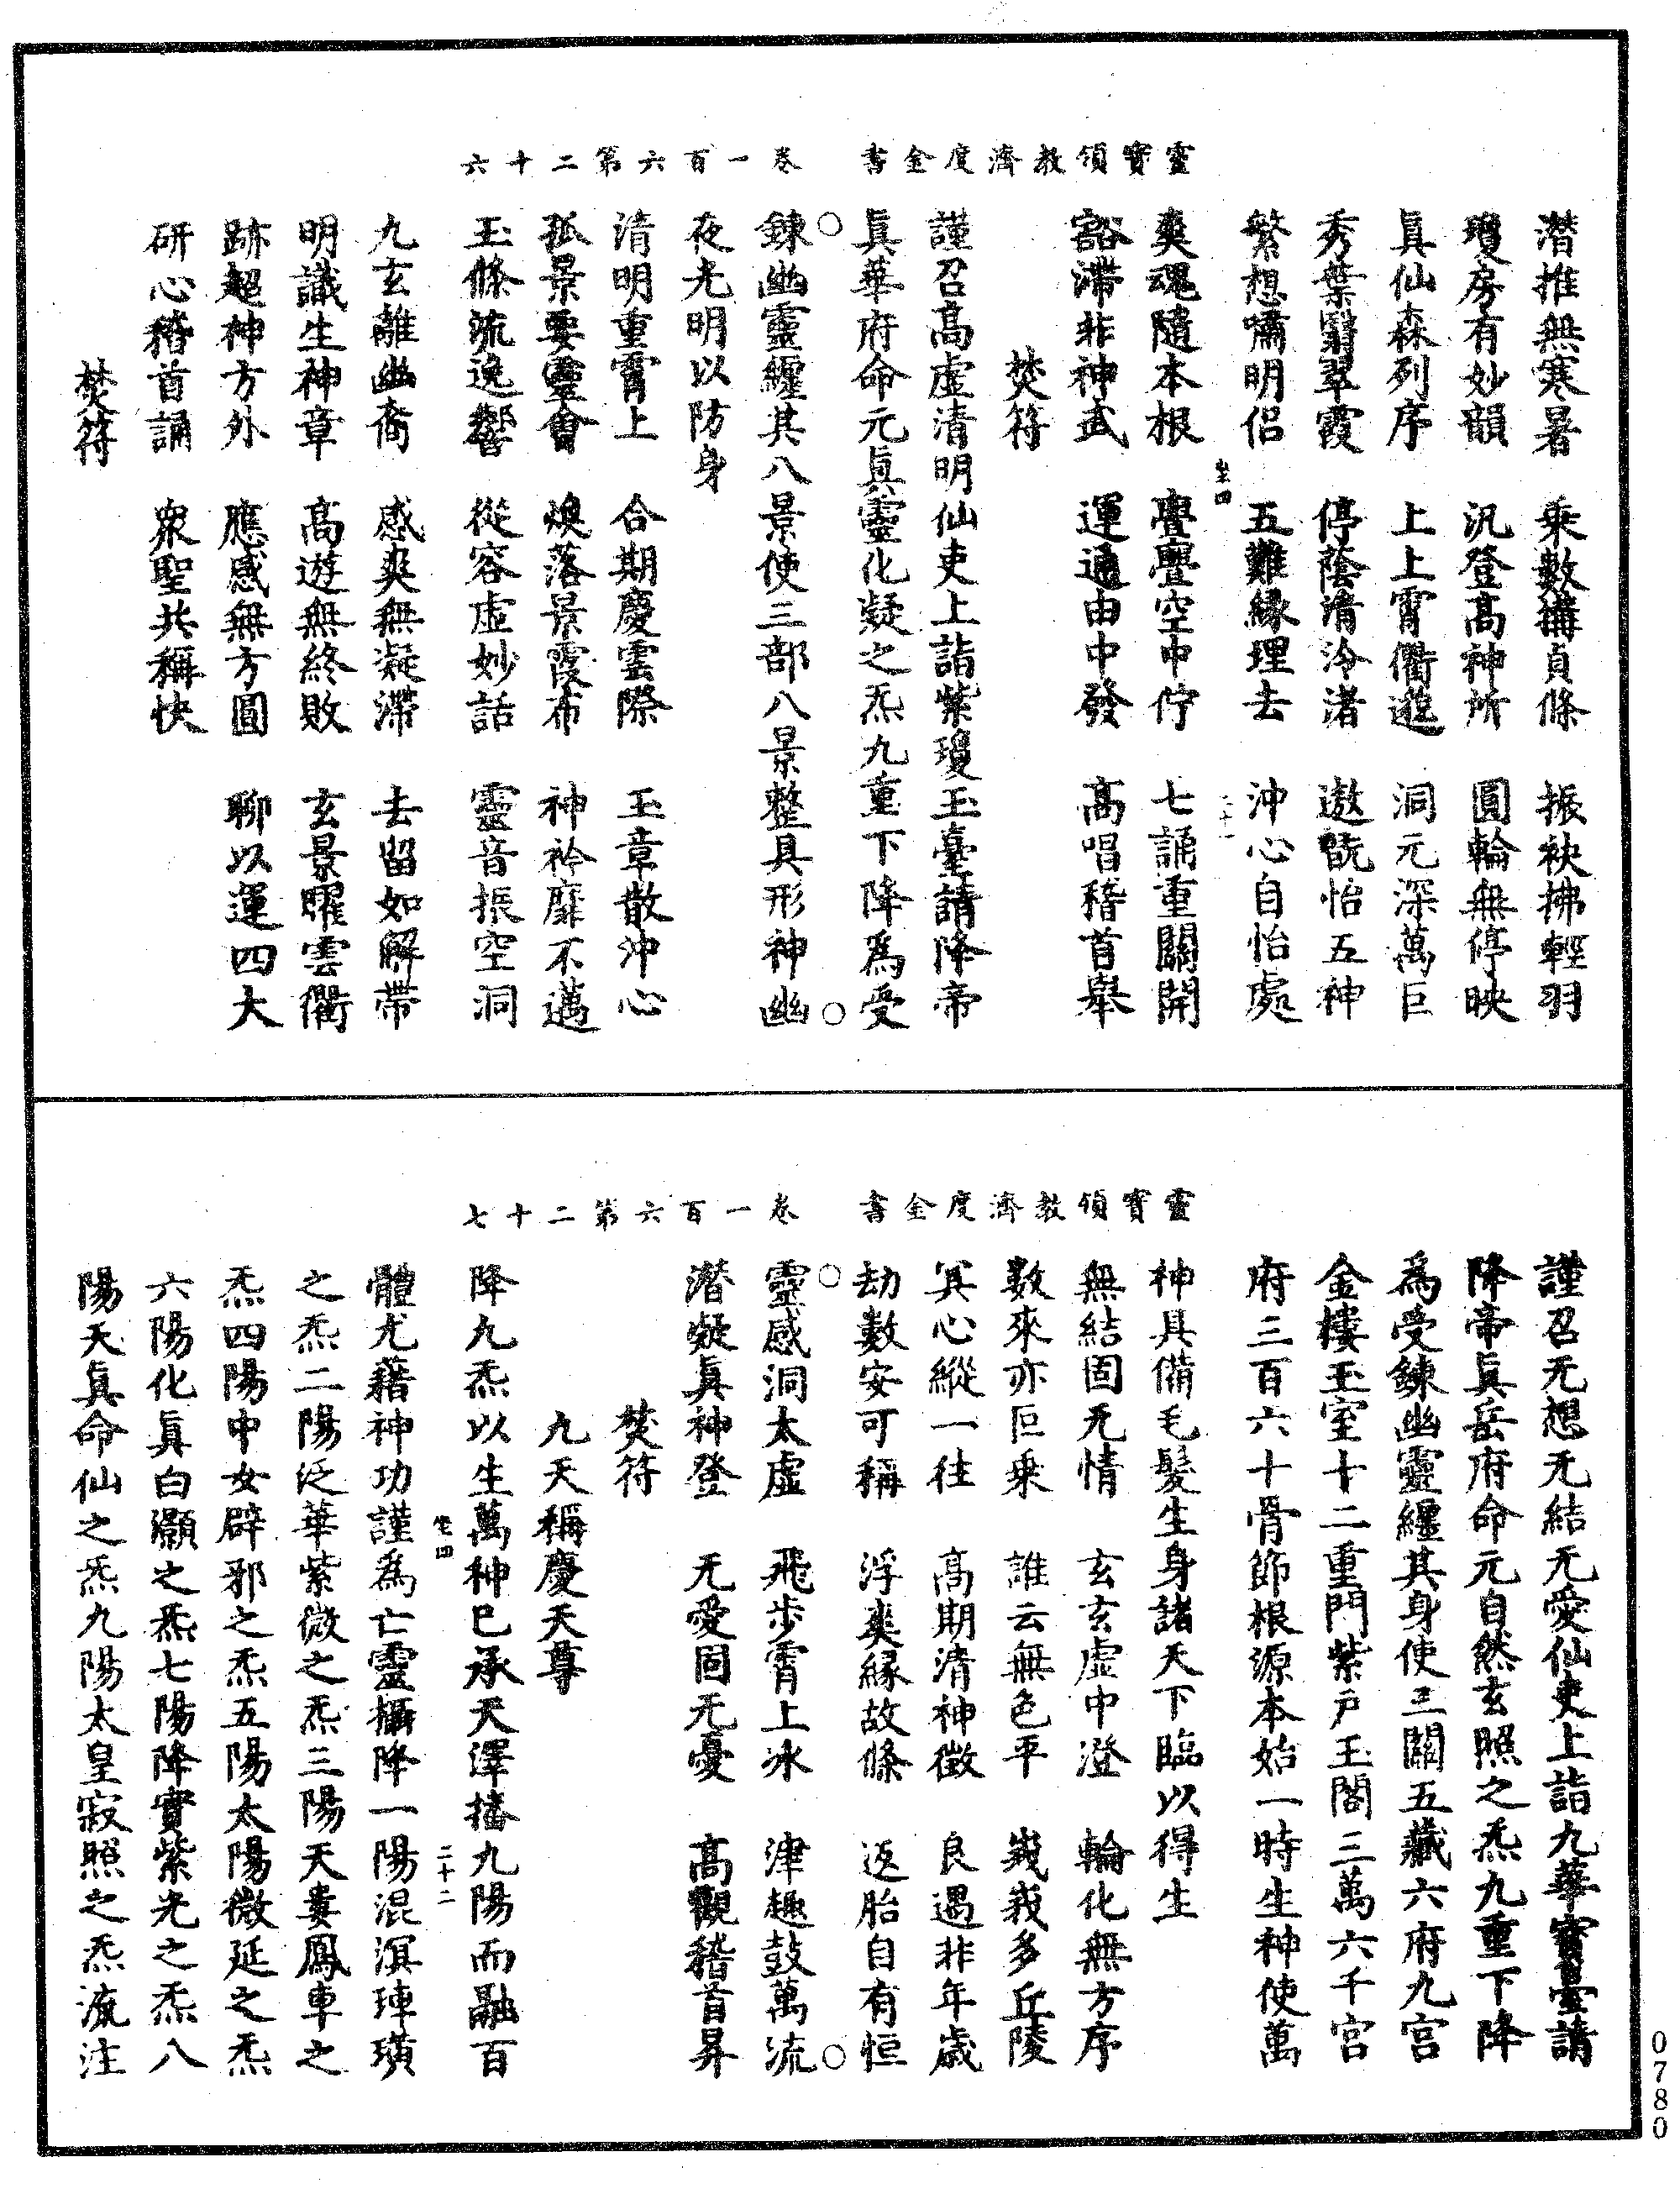 靈寶領教濟度金書　卷一百六第二十六
潜推無寒暑　乘數構貞條　振袂拂輕羽
瓊房有妙韻　汎登高神所　圓輪無停映
真仙森列序　上上霄衢邀　洞元深萬巨
秀葉翳翠霞　停蔭清泠渚　遨翫怡五神
繁想嘯明侶　五難緣理去　沖心自怡處
坐四　二十一
爽魂隨本根　亹亹空中佇　七誦重關開
豁滯非神武　運通由中發　高唱稽首舉
焚符
謹召高虛清明仙吏上詣紫瓊玉臺請降帝
真華府命元真靈化凝之炁九重下降為受
鍊幽靈纏其八景使三部八景整具形神幽
夜光明以防身
清明重霄上　合期慶雲際　玉章散沖心
孤景要靈會　煥落景霞布　神衿靡不邁
玉條流逸響　從容虛妙話　靈音振空洞
九玄離幽裔　感爽無凝滯　去留如解帶
明識生神章　高遊無終敗　玄景曜雲衢
跡超神方外　應感無方圓　聊以運四大
研心稽首誦　衆聖共稱快
焚符
靈寶領教濟度金書　卷一百六第二十七
謹召无想无結无愛仙吏上詣九華寶臺請
降帝真岳府命元自然玄照之炁九重下降
為受鍊幽靈纏其身使三關五藏六府九宫
金樓玉室十二重門紫戶玉閣三萬六千宫
府三百六十骨節根源本始一時生神使萬
神具備毛髮生身諸天下臨以得生
無結固无情　玄玄虛中澄　輪化無方序
數來亦叵乘　誰云無色平　峩峩多丘陵
冥心縱一往　高期清神徵　良遇非年歲
劫數安可稱　浮爽緣故條　返胎自有恒
靈感洞太虛　飛步霄上冰　津趣鼓萬流
潜凝真神登　无愛固无憂　高觀稽首昇
焚符
九天稱慶天尊
降九炁以生萬神已承天澤播九陽而融百
坐四　二十二
體尤藉神功謹為亡靈攝降一陽混溟璉璜
之炁二陽泛華紫微之炁三陽天婁鳳車之
炁四陽中女辟邪之炁五陽太陽微延之炁
六陽化真白灝之炁七陽降實紫光之炁八
陽天真命仙之炁九陽太皇寂照之炁流注
0780